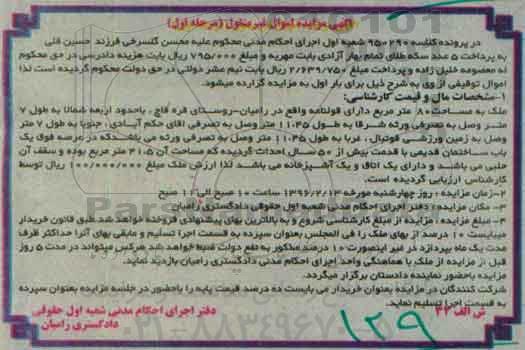 آگهی مزایده اموال غیرمنقول (مرحله اول)
در پرونده کلاسه ۹۵۰۲۹۰ شعبه اول اجرای احکام مدنی محکوم علیه محسن گلسرخی فرزند حسین قلی
به پرداخت ۵ عدد سکه طلای تمام بهار آزادی بابت مهریه و مبلغ ۷۹۵/۰۰۰ ریال بابت هزینه دادرسی در حق محکوم
له معصومه خلیل زاده و پرداخت مبلغ ۲/۶۳۹/۷۵۰ ریال بابت نیم عشر دولتی در حق دولت محکوم گردیده است لذا
اموال توقیفی از وی به شرح ذیل برای بار اول به مزایده گزارده میشود.
۱-مشخصات مال و قیمت کارشناسی:
ملک به مساحت ۸۰ متر مربع دارای قولنامه واقع در رامیان-روستای قره قاچ، باحدود اربعه شمالا به طول ۷
متر وصل به تصرفی ورثه شرقا به طول ۱۱.۴۵ متر وصل به تصرفی اقای حکم آبادی، جنوبا به طول ۷ متر
وصل به زمین ورزشی فوتبال، غربا به طول ۱۱.۴۵ متر وصل به تصرفی ورثه می باشدکه در عرصه فوق یک
باب ساختمان قدیمی با قدمت بیش از ۵۰ سال احداث گردیده که مساحت آن ۳۱.۵ متر مربع بوده و سقف آن
حلبی می باشد و دارای یک اتاق و یک آشپزخانه می باشد لذا ارزش ملک مبلغ ۱۰۰/۰۰۰/۰۰۰ ریال توسط
کارشناس ارزیابی گردیده است.
۲-زمان مزایده : روز چهارشنبه مورخه ۱۳۹۶/۲/۱۳ ساعت ۱۰ صبح الی ۱۲ صبح
۳- مکان مزایده : دفتر اجرای احکام مدنی شعبه اول حقوقی دادگستری رامیان
۴- مبلغ مزایده : مزایده از مبلغ کارشناسی شروع و به بالاترین بهای پیشنهادی فروخته خواهد شد.طبق قانون خریدار
میبایست ۱۰ درصد از بهای ملک را فی المجلس بعنوان سپرده به قسمت اجرا تسلیم و مابقی بهای آنرا حداکثر ظرف
مدت یک ماه بپردازد در غیر اینصورت ۱۰ درصد مذکور به نفع دولت ضبط خواهد شد هرکس میتواند در مدت ۵ روز
قبل از مزایده از ملک با هماهنگی واحد اجرای احکام مدنی دادگستری رامیان بازدید نماید.
مزایده باحضور نماینده دادستان برگزار میگردد.
شرکت کنندگان در مزایده بعنوان خریدار می بایست ده درصد قیمت پایه را باحضور در جلسه مزایده بعنوان سپرده
به قسمت اجرا تسلیم نماید.
دفتر اجرای احکام مدنی شعبه اول حقوقی
دادگستری رامیان
ش الف ۴۲
۱۲۹
۰۲۱-۸۸۳۴۹۶۷۰-۵